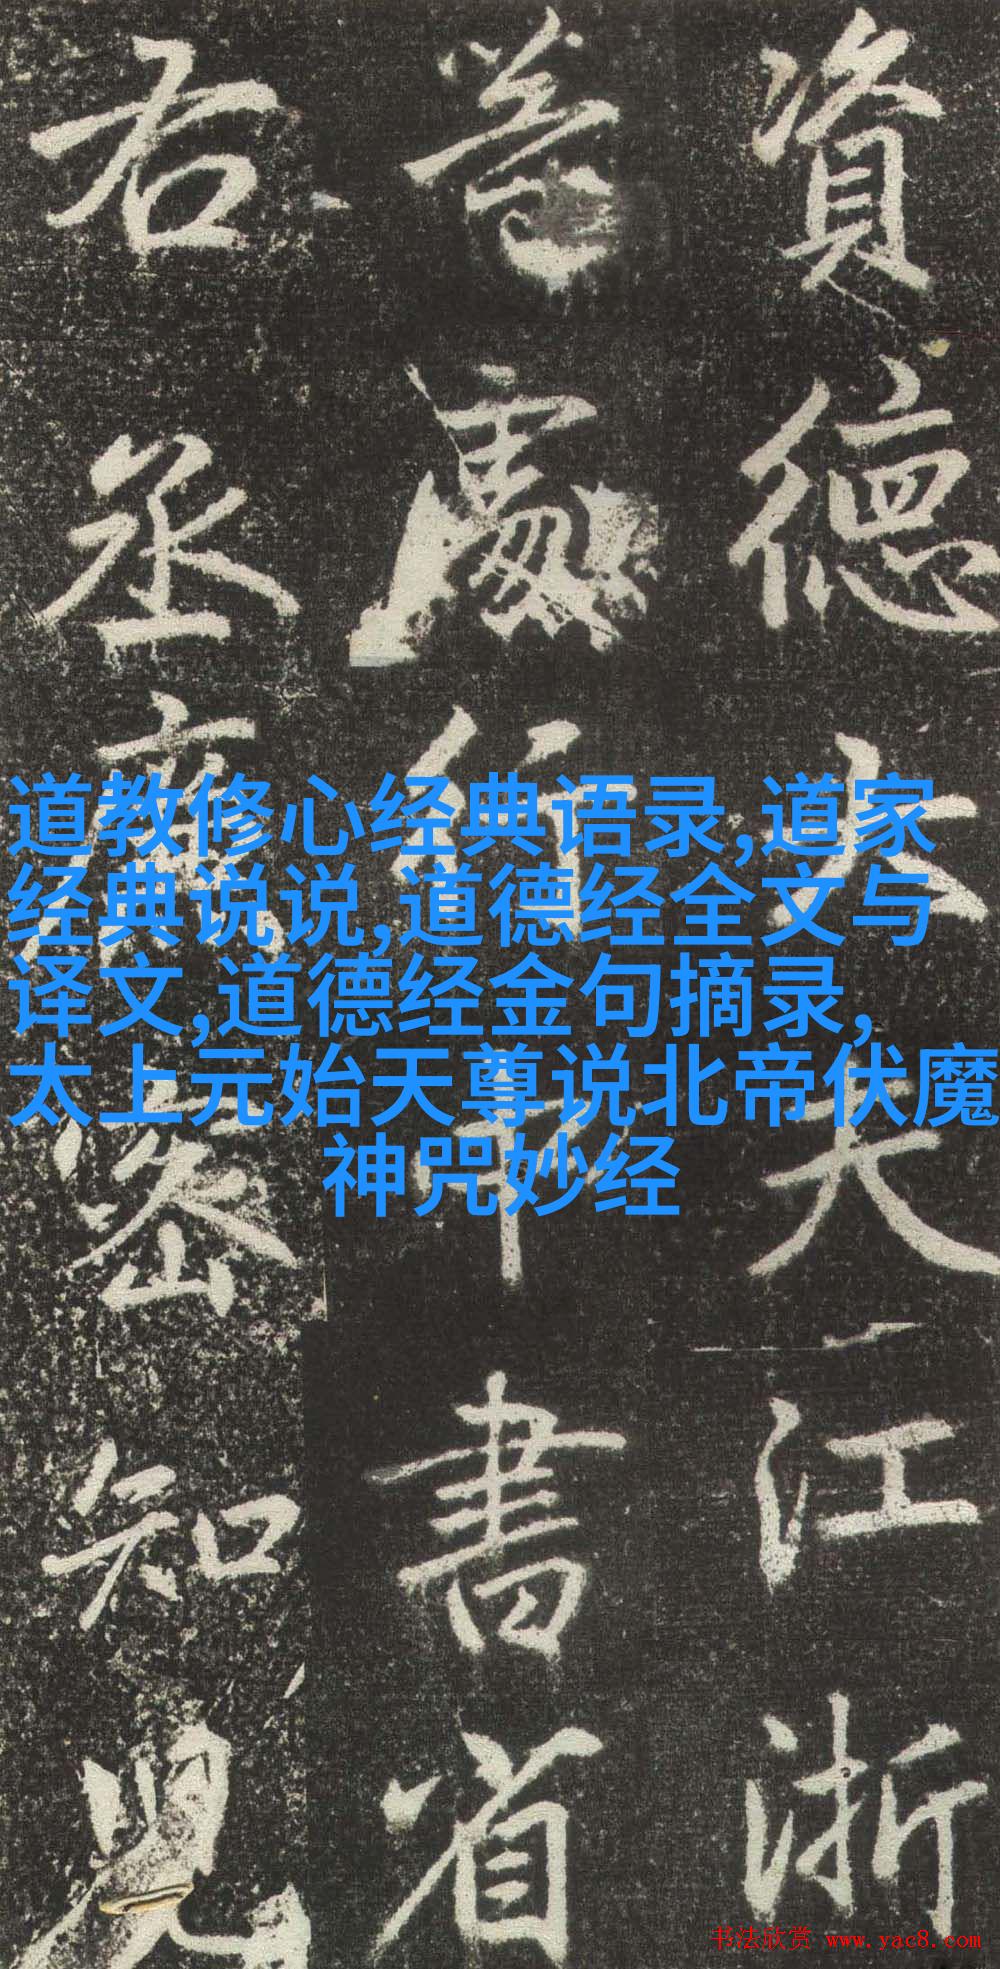 資德大夫江浙
等處行中書省
右丞廉密知兒
道教修心经典语录,道家
经典说说,道德经全文与
译文,道德经金句摘录,
太上元始天尊说北帝伏魔
神咒妙经
书法欣赏 www.yac8.com